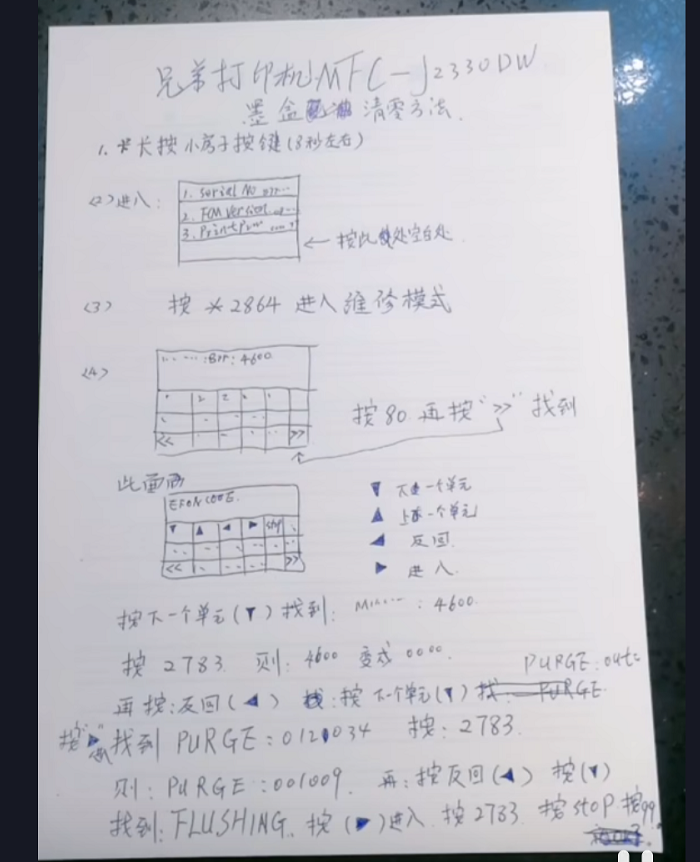 兄弟打印机MFC-J2330DW
墨盒 清零方法.
1. 长按小房子按键(3秒左右)
<2>进入:
1. Serial No
2. FCM Version
3. Print
← 按此处空白处
<3> 按 *2864 进入维修模式
<4>
Err: 4600
<< >>
按80 再按“>>” 找到
此画面
▼ 下一个单元
▲ 上一个单元
◀ 反回
▶ 进入
▼ ▲ ◀ ▶ stop
<< >>
按下一个单元(▼)找到: : 4600.
按 2783. 则: 4600 变成 0000.
PURGE:
再按:反回(◀) 按下个单元(▼)
按“▶” 找到 PURGE: 012 034 按: 2783.
则: PURGE : 001009. 再:按反回(◀) 按(▼)
找到: FLUSHING. 按 (▶)进入. 按 2783. 按 stop. 按99